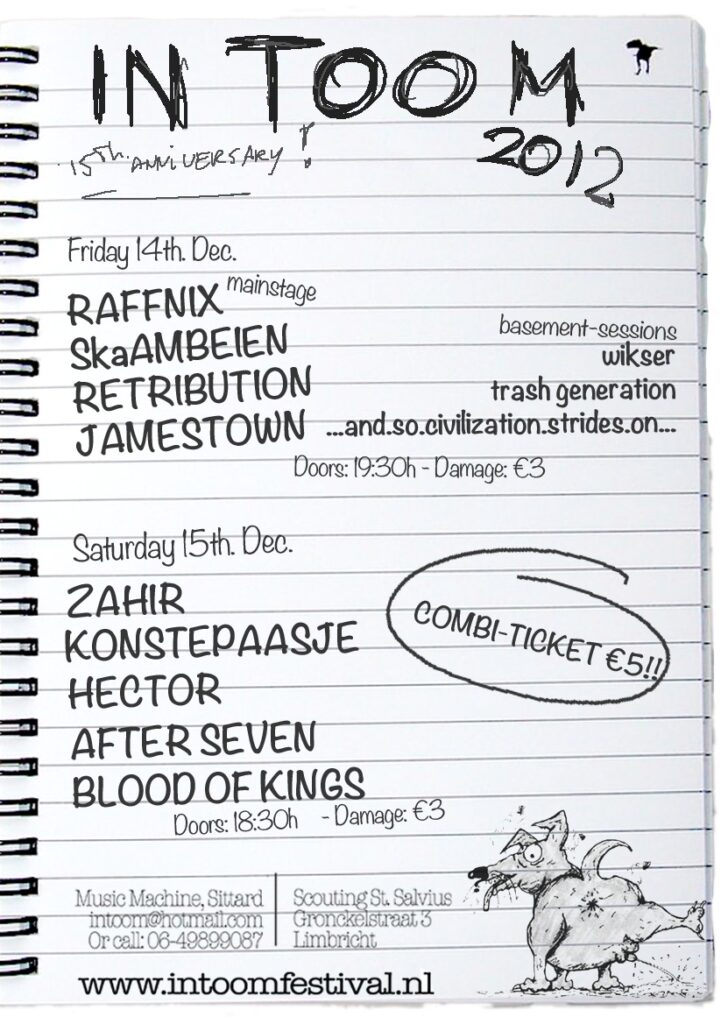 IN TOOM
15th. ANNIVERSARY!
2012
Friday 14th. Dec.
RAFFNIX mainstage
SkaAMBEIEN
RETRIBUTION
JAMESTOWN
basement-sessions
wikser
trash generation
...and.so.civilization.strides.on...
Doors: 19:30h - Damage: €3
Saturday 15th. Dec.
ZAHIR
KONSTEPAASJE
HECTOR
AFTER SEVEN
BLOOD OF KINGS
Doors: 18:30h - Damage: €3
COMBI-TICKET €5!!
Music Machine, Sittard
intoom@hotmail.com
Or call: 06-49899087
Scouting St. Salvius
Gronckelstraat 3
Limbricht
www.intoomfestival.nl